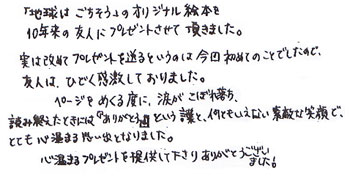 「地球は ごちそう」の オリジナル 絵本を
10年来の 友人に プレゼントさせて 頂きました。
実は 改めて プレゼントを 送る というのは 今回 初めて のことでしたので、
友人は、ひどく 感激して おりました。
ページを めくる度に、涙が こぼれ落ち、
読み終えたときには『ありがとう』という 言葉と、何ともいえない 素敵な 笑顔で、
とても 心温まる 思い出と なりました。
心温まる プレゼントを 提供して 下さり ありがとうござい
ました!